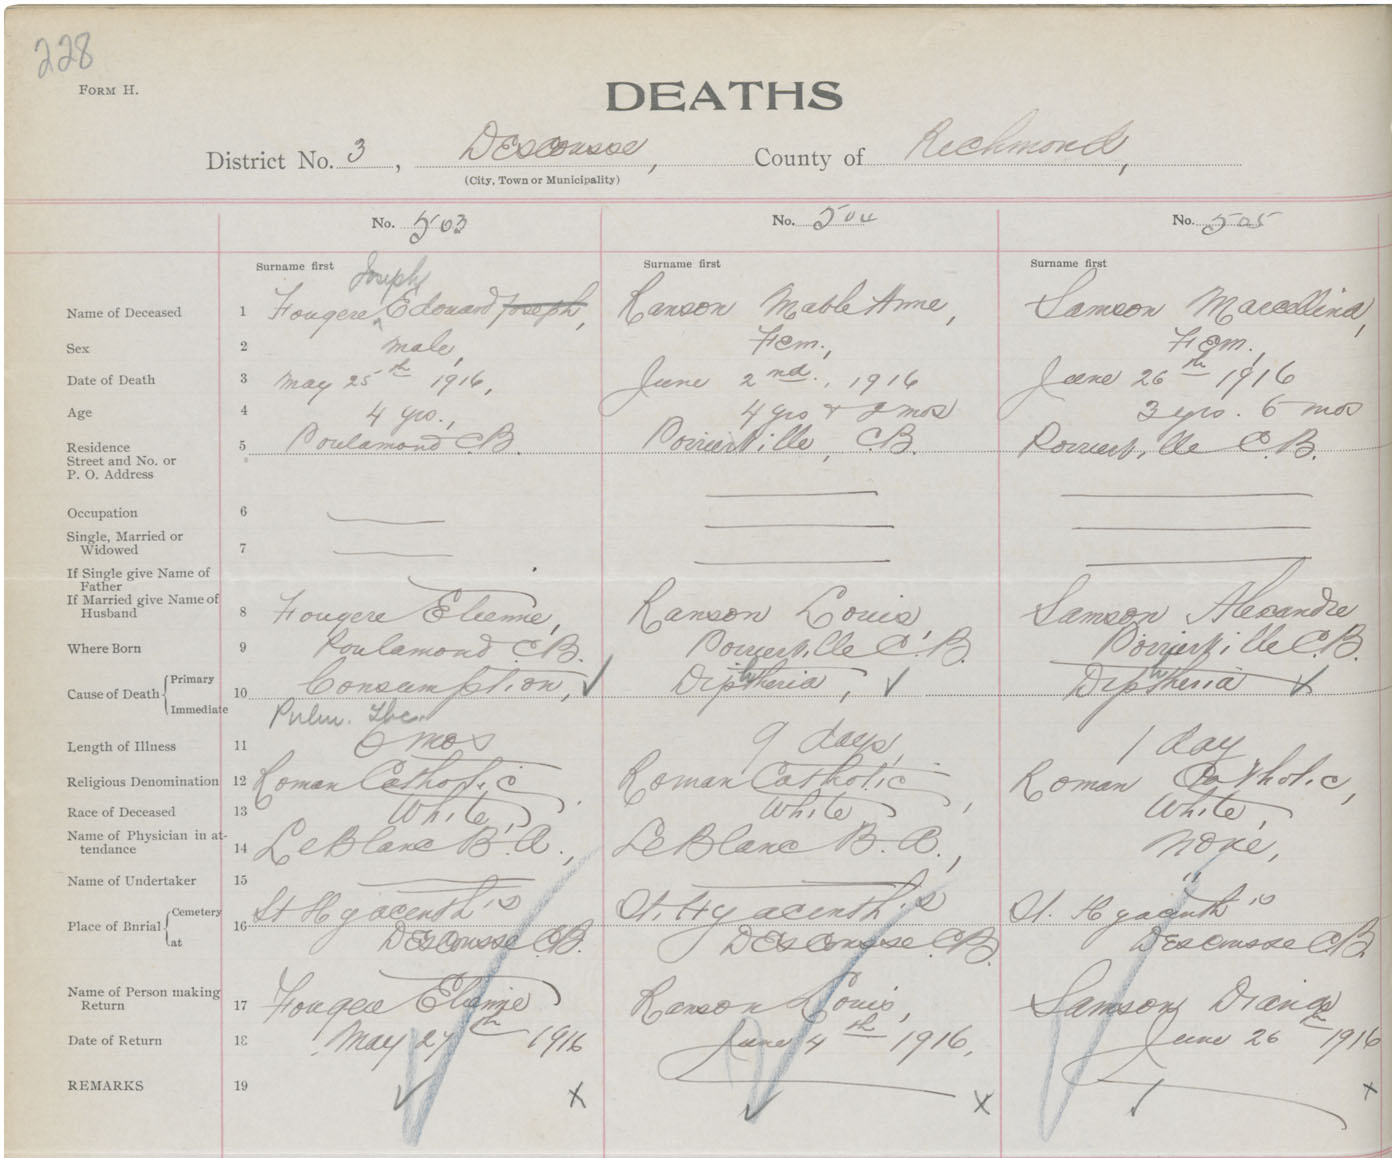 228
FORM H.
DEATHS
District No. 3, Descousse, County of Richmond,
(City, Town or Municipality)
No. 503 No. 504 No. 505
Surname first Surname first Surname first
Joseph
Name of Deceased 1 Fougere Edouard Joseph, Ranson Mable Anne, Samson Marcellina,
Sex 2 male, Fem., Fem,
Date of Death 3 May 25th 1916, June 2nd., 1916 June 26th 1916
Age 4 4 yrs., 4 yrs & 2 mos 3 yrs. 6 mos
Residence 5 Poulamond C.B. Poirierville, C.B. Poirierville C.B.
Street and No. or
P. O. Address
Occupation 6
Single, Married or
Widowed 7
If Single give Name of
Father
If Married give Name of
Husband 8 Fougere Etienne, Ranson Louis Samson Alexandre
Where Born 9 Poulamond C.B. Poirierville C.B. Poirierville C.B.
Cause of Death Primary 10 Consumption, ✓ Diphtheria, ✓ Diphtheria ✓
Immediate Pulm. Tbc.
Length of Illness 11 6 mos 9 days, 1 day
Religious Denomination 12 Roman Catholic, Roman Catholic, Roman Catholic,
Race of Deceased 13 White, White, White,
Name of Physician in at-
tendance 14 LeBlanc B.A., LeBlanc B.A., None,
Name of Undertaker 15 "
Place of Burial Cemetery 16 St Hyacenth's St. Hyacenth's St. Hyacinth's
at Descousse C.B. Descousse C.B. Descousse C.B.
Name of Person making
Return 17 Fougere Etienne Ranson Louis, Samson
Date of Return 18 May 27th 1916 June 4th 1916. June 26th 1916
REMARKS 19 ✓ x ✓ x ✓ x